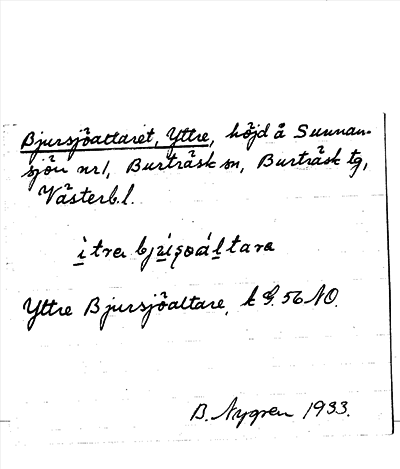 Bjursjöaltaret, Yttre, höjd å Sunnan-
sjön nr 1, Burträsk sn, Burträsk tg,
Västerb. l.
itra bjuṣoáltara
Yttre Bjursjöaltare, k G. 56 NO.
B. Nygren 1933.